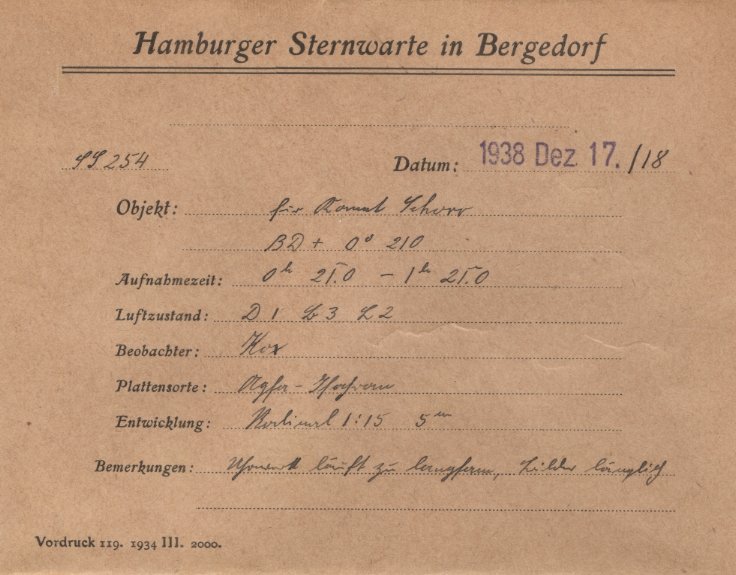 Hamburger Sternwarte in Bergedorf
SS 254 Datum: 1938 Dez 17. /18
Objekt: für Komet Schorr
BD + 0° 210
Aufnahmezeit: 0h 25.0 – 1h 25.0
Luftzustand: D 1 B 3 L 2
Beobachter: Kox
Plattensorte: Agfa-Isochrom
Entwicklung: Rodinal 1:15 5m
Bemerkungen: Uhrwerk läuft zu langsam, Bilder länglich
Vordruck 119. 1934 III. 2000.